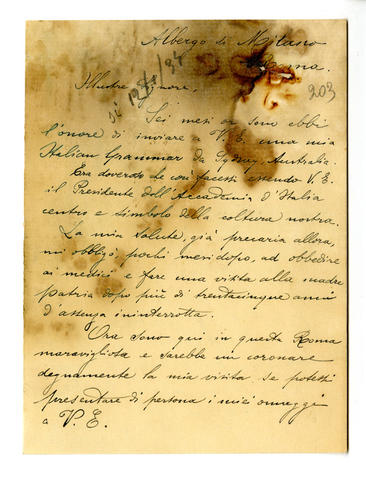 Albergo di Milano
Roma.
203
Illustre Signore.
Sei mesi or sono ebbi
l'onore di inviare a V. E. una mia
Italian Grammar da Sydney, Australia.
Era doveroso che così facessi essendo V. E.
il Presidente dell'Accademia d'Italia
centro e simbolo della coltura nostra.
La mia salute, già precaria allora,
mi obbligò, pochi mesi dopo, ad obbedire
ai medici e fare una visita alla madre
patria dopo più di trentacinque anni
d'assenza ininterrotta.
Ora sono qui in questa Roma
maravigliosa e sarebbe un coronare
degnamente la mia visita se potessi
presentare di persona i miei omaggi
a V. E.